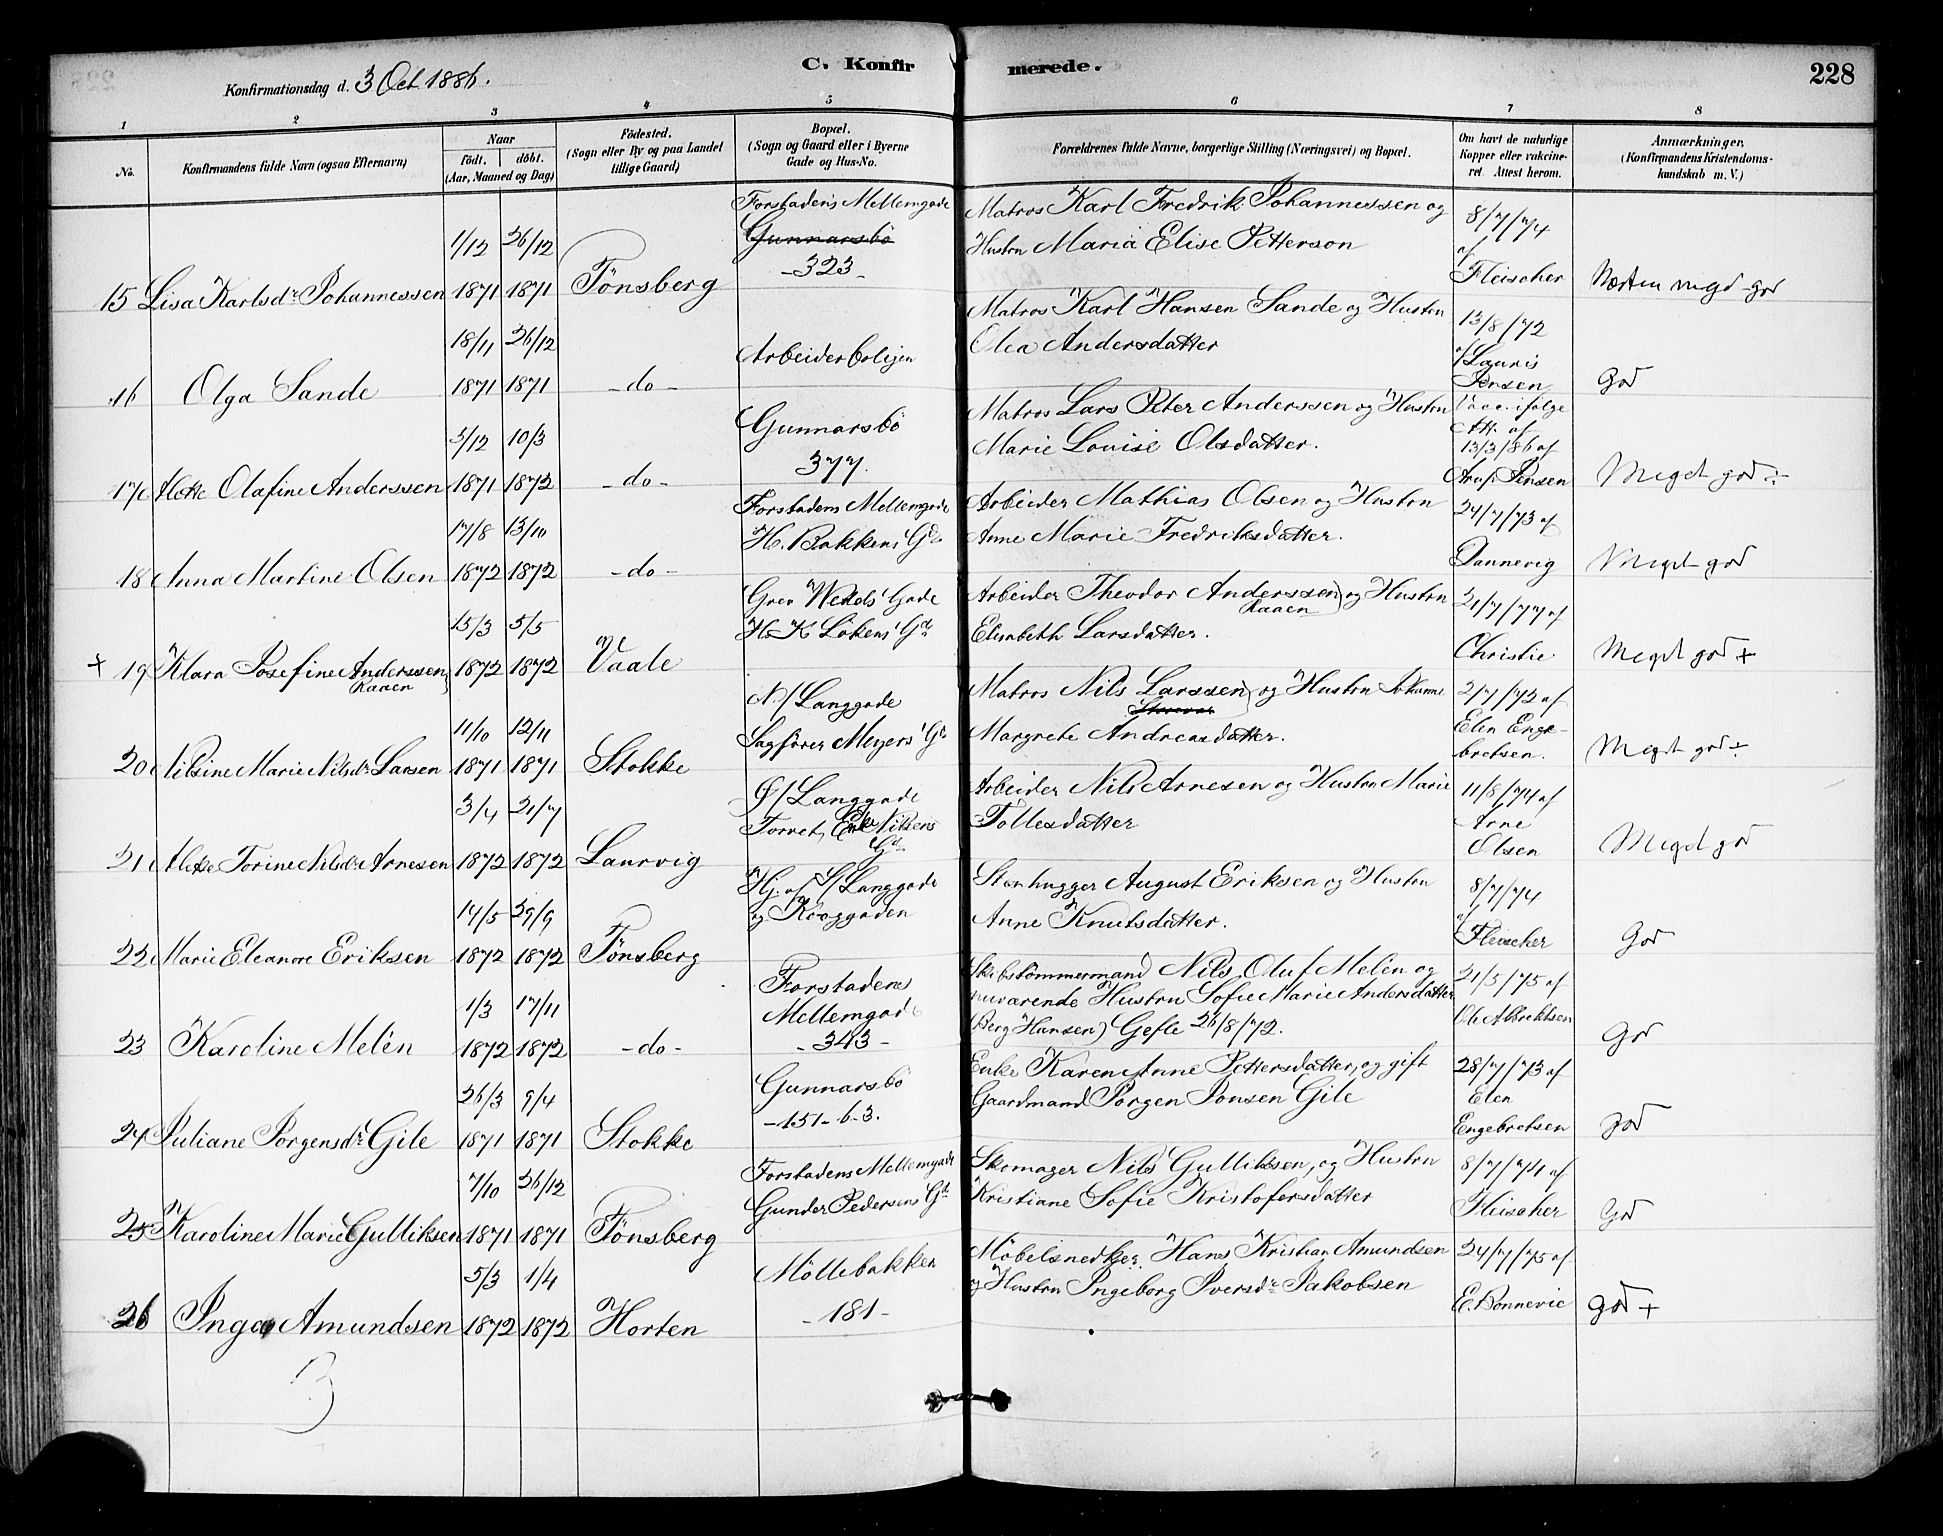 C. Konfirmerede.
228
Konfirmationsdag d. 3 Oct 1886.
1 2 3 4 5 6 7 8
No.
Konfirmandens fulde Navn (ogsaa Efternavn)
Naar
födt. döbt.
(Aar, Maaned og Dag)
Födested.
(Sogn eller By og paa Landet
tillige Gaard)
Bopæl.
(Sogn og Gaard eller i Byerne
Gade og Hus-No.
Forældrenes fulde Navne, borgerlige Stilling (Næringsvei) og Bopæl.
Om havt de naturlige
Kopper eller vakcine-
ret. Attest herom.
Anmærkninger.
(Konfirmandens Kristendoms-
kundskab m. V.)
15 Lisa Karlsdr Johannessen
1/12 26/12
1871 1871
Tönsberg
Forstadens Mellemgade
Gunnarsbö
-323-
Matros Karl Fredrik Johannessen og
Hustru Maria Elise Petterson
8/7/74
af
Fleischer
Næsten megd-god
16 Olga Sande
18/11 26/12
1871 1871
-do-
Arbeiderboligen
Matros Karl Hansen Sande og Hustru
Olea Andersdatter
13/8/72
af Lauris
Jensen
God
17 Alette Olafine Anderssen
5/12 10/3
1871 1872
-do-
Gunnarsbö
377.
Matros Lars Peter Anderssen og Hustru
Marie Louise Olsdatter.
Vacc. ifølge
Att. af
13/3/86 af
Jensen
Meget god ÷
18 Anna Martine Olsen
17/8 13/10
1872 1872
-do-
Forstadens Mellemgade
H. Bakkens Gd
Arbeider Mathias Olsen og Hustru
Anne Marie Fredriksdatter.
24/7/73 af
Dannevig
Meget god
+ 19 Klara Josefine Anderssen
Raaen
15/3 5/5
1872 1872
Vaale
Grev Wedels' Gade
H. K Lökens' Gd
Arbeider Theodor Anderssen og Hustru
Raaen
Elisabeth Larsdatter.
21/7/77 af
Christie
Meget god +
20 Nilsine Marie Nilsdr Larsen
11/10 12/11
1871 1871
Stokke
N./Langgade
Sagförer Meyers' Gd
Matros Nils Larssen og Hustru Johanne
Margrete Andreasdatter.
2/7/72 af
Elen Enge-
bretsen.
Meget god ÷
21 Alette Torine Nilsdr Arnesen
3/4 21/7
1872 1872
Laurvig
Ø/Langgade
Torvet, Enke Nilsens
Gd
Arbeider Nils Arnesen og Hustru Marie
Tollesdatter
11/8/74 af
Arne
Olsen
Meget god
22 Marie Eleanore Eriksen
14/5 29/9
1872 1872
Tönsberg
Hj. af S/Langgade
og Kroggaden
Stenhugger August Eriksen og Hustru
Anne Knutsdatter.
8/7/74
af
Fleischer
God
23 Karoline Melén
1/3 17/11
1872 1872
-do-
Forstadens
Mellemgade
-343-
Skibstömmermand Nils Oluf Melén og
nuværende Hustru Sofie Marie Andersdatter
(Berg Hansen) Gefle 26/8/72.
21/5/75 af
Ole Albrektsen
God
24 Juliane Jörgensdr Gile
26/3 9/4
1871 1871
Stokke
Gunnarsbö
-151-b-3.
Enke Karen Anne Pettersdatter, og gift
Gaardmand Jörgen Jonsen Gile
28/7/73 af
Elen
Engebretsen
God
25 Karoline Marie Gulliksen
7/10 26/12
1871 1871
Tönsberg
Forstadens Mellemgade
Gunder Pedersens Gd
Skomager Nils Gulliksen, og Hustru
Kristiane Sofie Kristofersdatter
8/7/74 af
Fleischer
God
26 Inga Amundsen
5/3 1/4
1872 1872
Horten
Möllebakken
-181-
Möbelsnedker Hans Kristian Amundsen
og Hustru Ingeborg Iversdr Jakobsen
24/7/75 af
E. Bonnevie
God +